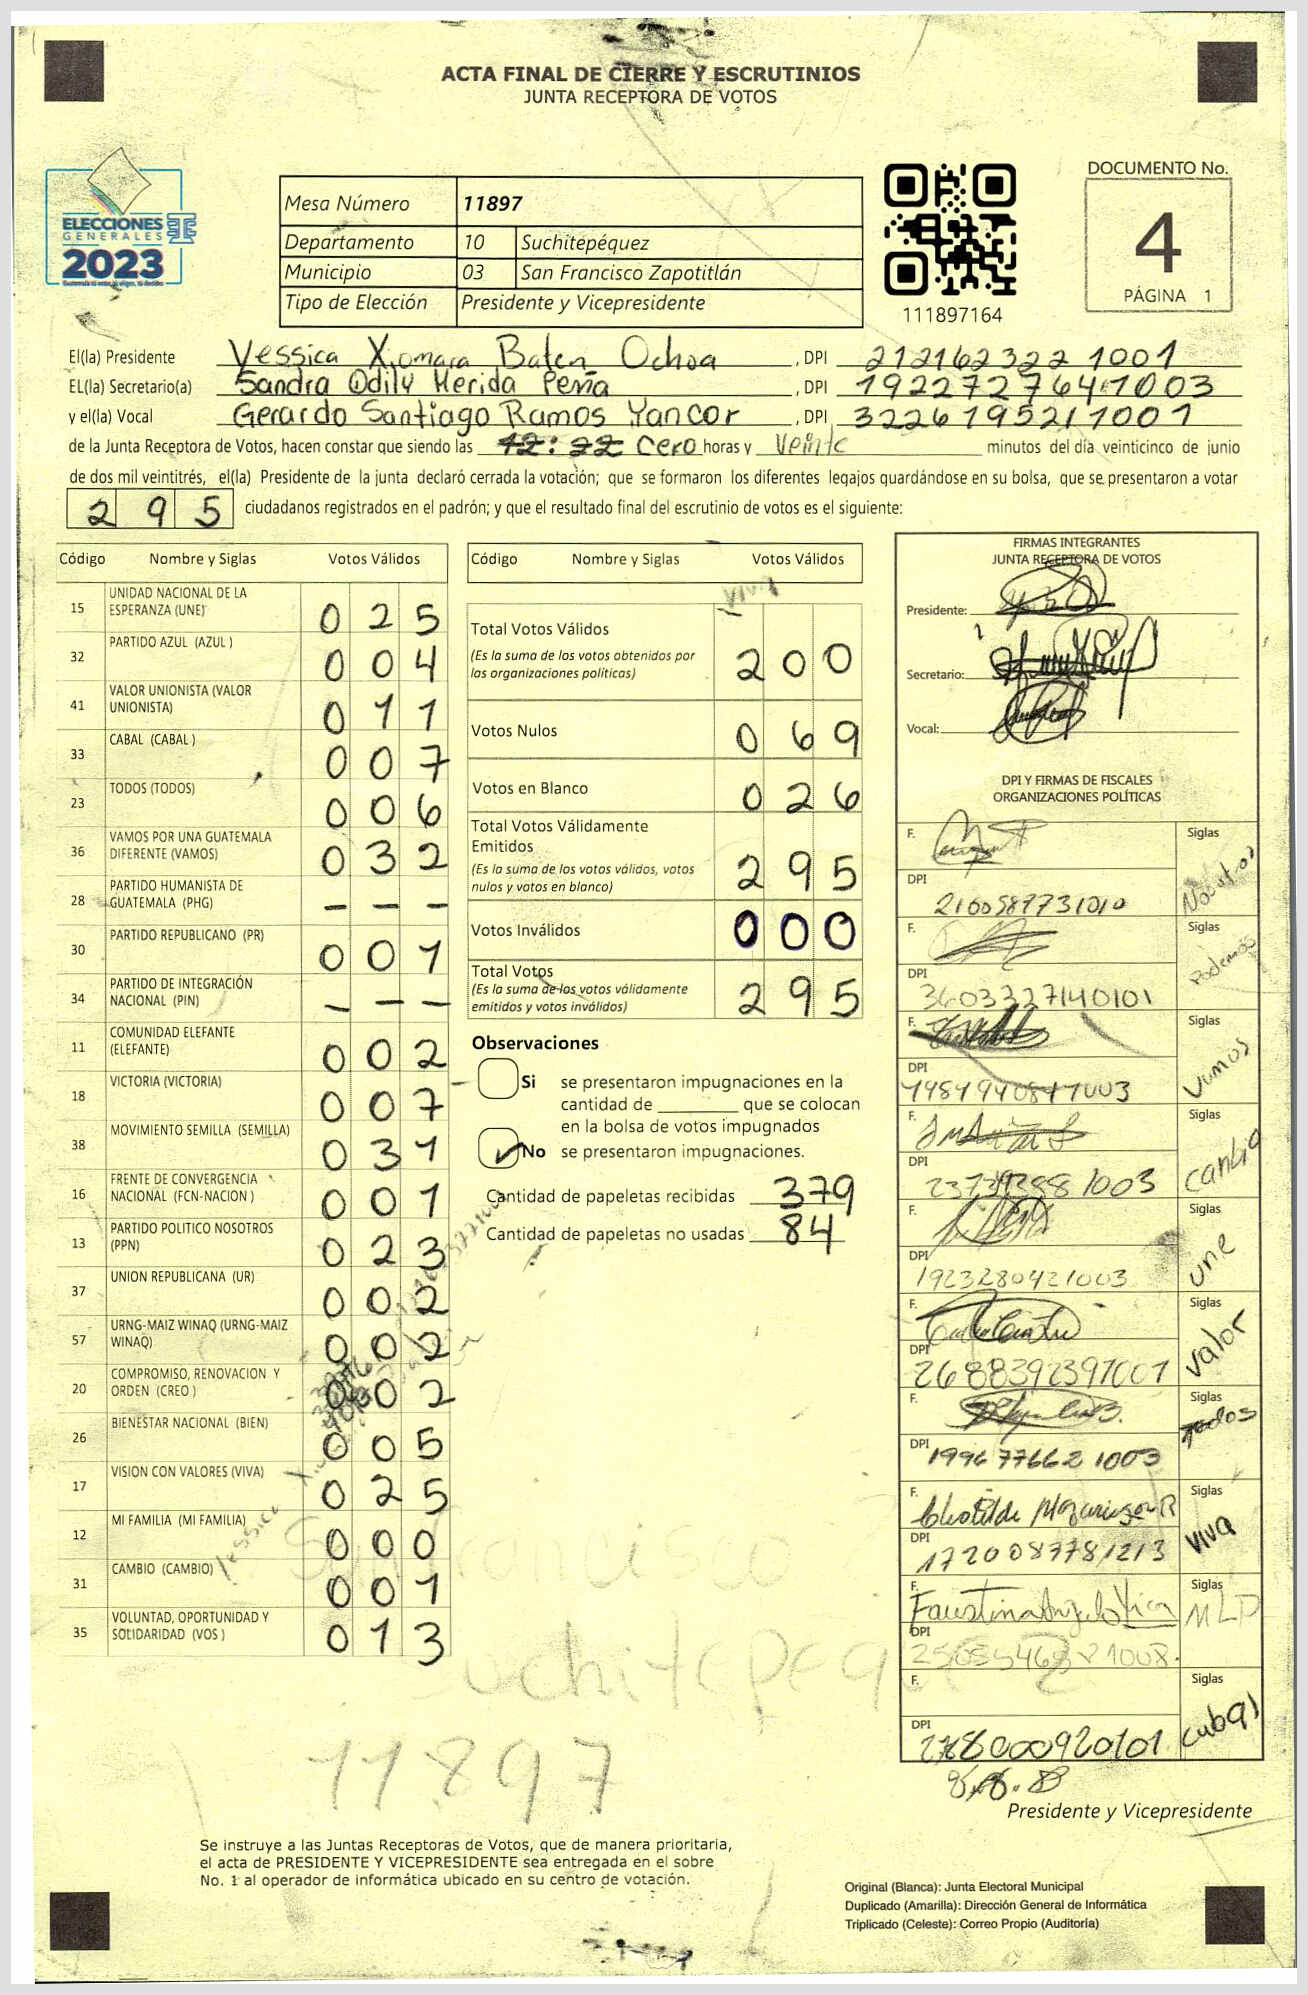 ACTA FINAL DE CIERRE Y ESCRUTINIOS
JUNTA RECEPTORA DE VOTOS
ELECCIONES
GENERALES
2023
Mesa Número 11897
Departamento 10 Suchitepéquez
Municipio 03 San Francisco Zapotitlán
Tipo de Elección Presidente y Vicepresidente
111897164
DOCUMENTO No.
4
PÁGINA 1
El(la) Presidente Yessica Xiomara Baten Ochoa, DPI 212162322 1001
EL(la) Secretario(a) Sandra Odily Merida Peña, DPI 1922727641003
y el(la) Vocal Gerardo Santiago Ramos Yancor, DPI 3226195211001
de la Junta Receptora de Votos, hacen constar que siendo las 12:22 cero horas y veinte minutos del día veinticinco de junio
de dos mil veintitrés, el(la) Presidente de la junta declaró cerrada la votación; que se formaron los diferentes legajos quardándose en su bolsa, que se presentaron a votar
295 ciudadanos registrados en el padrón; y que el resultado final del escrutinio de votos es el siguiente:
Código Nombre y Siglas Votos Válidos
15 UNIDAD NACIONAL DE LA ESPERANZA (UNE) 025
32 PARTIDO AZUL (AZUL ) 004
41 VALOR UNIONISTA (VALOR UNIONISTA) 011
33 CABAL (CABAL ) 007
23 TODOS (TODOS) 006
36 VAMOS POR UNA GUATEMALA DIFERENTE (VAMOS) 032
28 PARTIDO HUMANISTA DE GUATEMALA (PHG) - - -
30 PARTIDO REPUBLICANO (PR) 001
34 PARTIDO DE INTEGRACIÓN NACIONAL (PIN) - - -
11 COMUNIDAD ELEFANTE (ELEFANTE) 002
18 VICTORIA (VICTORIA) 007
38 MOVIMIENTO SEMILLA (SEMILLA) 031
16 FRENTE DE CONVERGENCIA NACIONAL (FCN-NACION ) 001
13 PARTIDO POLITICO NOSOTROS (PPN) 023
37 UNION REPUBLICANA (UR) 002
57 URNG-MAIZ WINAQ (URNG-MAIZ WINAQ) 002
20 COMPROMISO, RENOVACION Y ORDEN (CREO ) 002
26 BIENESTAR NACIONAL (BIEN) 005
17 VISION CON VALORES (VIVA) 025
12 MI FAMILIA (MI FAMILIA) 000
31 CAMBIO (CAMBIO) 001
35 VOLUNTAD, OPORTUNIDAD Y SOLIDARIDAD (VOS ) 013
Código Nombre y Siglas Votos Válidos
viva
Total Votos Válidos 200
(Es la suma de los votos obtenidos por
las organizaciones políticas)
Votos Nulos 069
Votos en Blanco 026
Total Votos Válidamente
Emitidos 295
(Es la suma de los votos válidos, votos
nulos y votos en blanco)
Votos Inválidos 000
Total Votos 295
(Es la suma de los votos válidamente
emitidos y votos inválidos)
Observaciones
Si se presentaron impugnaciones en la
cantidad de ________ que se colocan
en la bolsa de votos impugnados
No se presentaron impugnaciones.
Cantidad de papeletas recibidas 379
Cantidad de papeletas no usadas 84
FIRMAS INTEGRANTES
JUNTA RECEPTORA DE VOTOS
Presidente:
Secretario:
Vocal:
DPI Y FIRMAS DE FISCALES
ORGANIZACIONES POLÍTICAS
F. Siglas Nosotros
DPI 2160587731010
F. Siglas Podemos
DPI 3603327140101
F. Siglas Vamos
DPI
F. Siglas cambio
DPI
F. Siglas une
DPI 1923280421003
F. Siglas valor
DPI 2688392391001
F. Siglas Todos
DPI 1996776621003
F. Siglas viva
DPI 1720087781213
F. Faustina Siglas MLP
DPI
F. Siglas cabal
DPI
San Francisco
Suchitepequez
11897
Presidente y Vicepresidente
Se instruye a las Juntas Receptoras de Votos, que de manera prioritaria,
el acta de PRESIDENTE Y VICEPRESIDENTE sea entregada en el sobre
No. 1 al operador de informática ubicado en su centro de votación.
Original (Blanca): Junta Electoral Municipal
Duplicado (Amarilla): Dirección General de Informática
Triplicado (Celeste): Correo Propio (Auditoría)